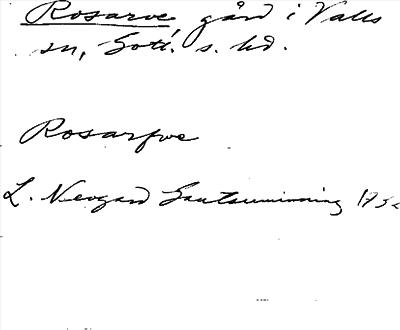 Rosarve, gård i Valls
sn, Gotl. s. hd.
Rosarfve
L. Neogard Gautauminning 1732